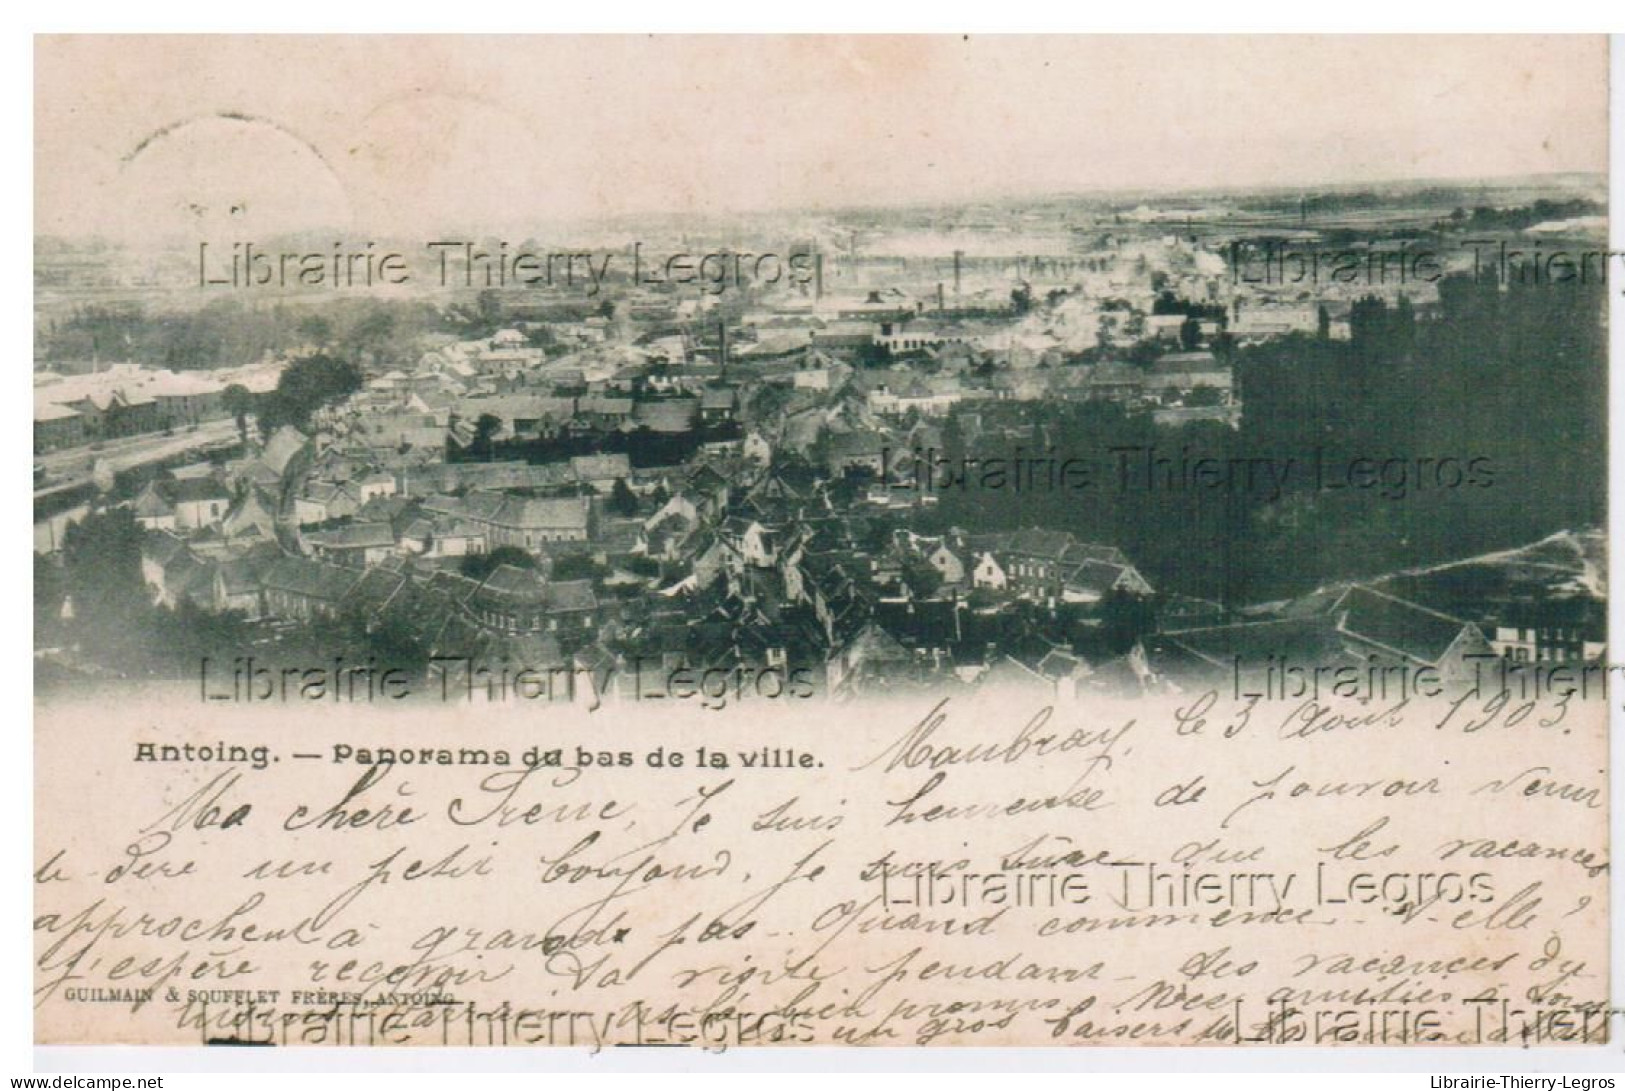 Librairie Thierry Legros Librairie Thierry
Librairie Thierry Legros
Librairie Thierry Legros Librairie Thierry
Antoing. — Panorama du bas de la ville.
Maubray, le 3 Août 1903.
Ma chère Irène, Je suis heureuse de pouvoir venir
te dire un petit bonjour. Je suis sûre que les vacances
Librairie Thierry Legros
approchent à grands pas. Quand commence-t-elle?
J'espère recevoir ta visite pendant les vacances du
GUILMAIN & SOUFFLET FRÈRES, ANTOING
moins bien promis. Mes amitiés à
un gros baisers
Librairie Thierry Legros Librairie Thierry
www.delcampe.net
Librairie-Thierry-Legros